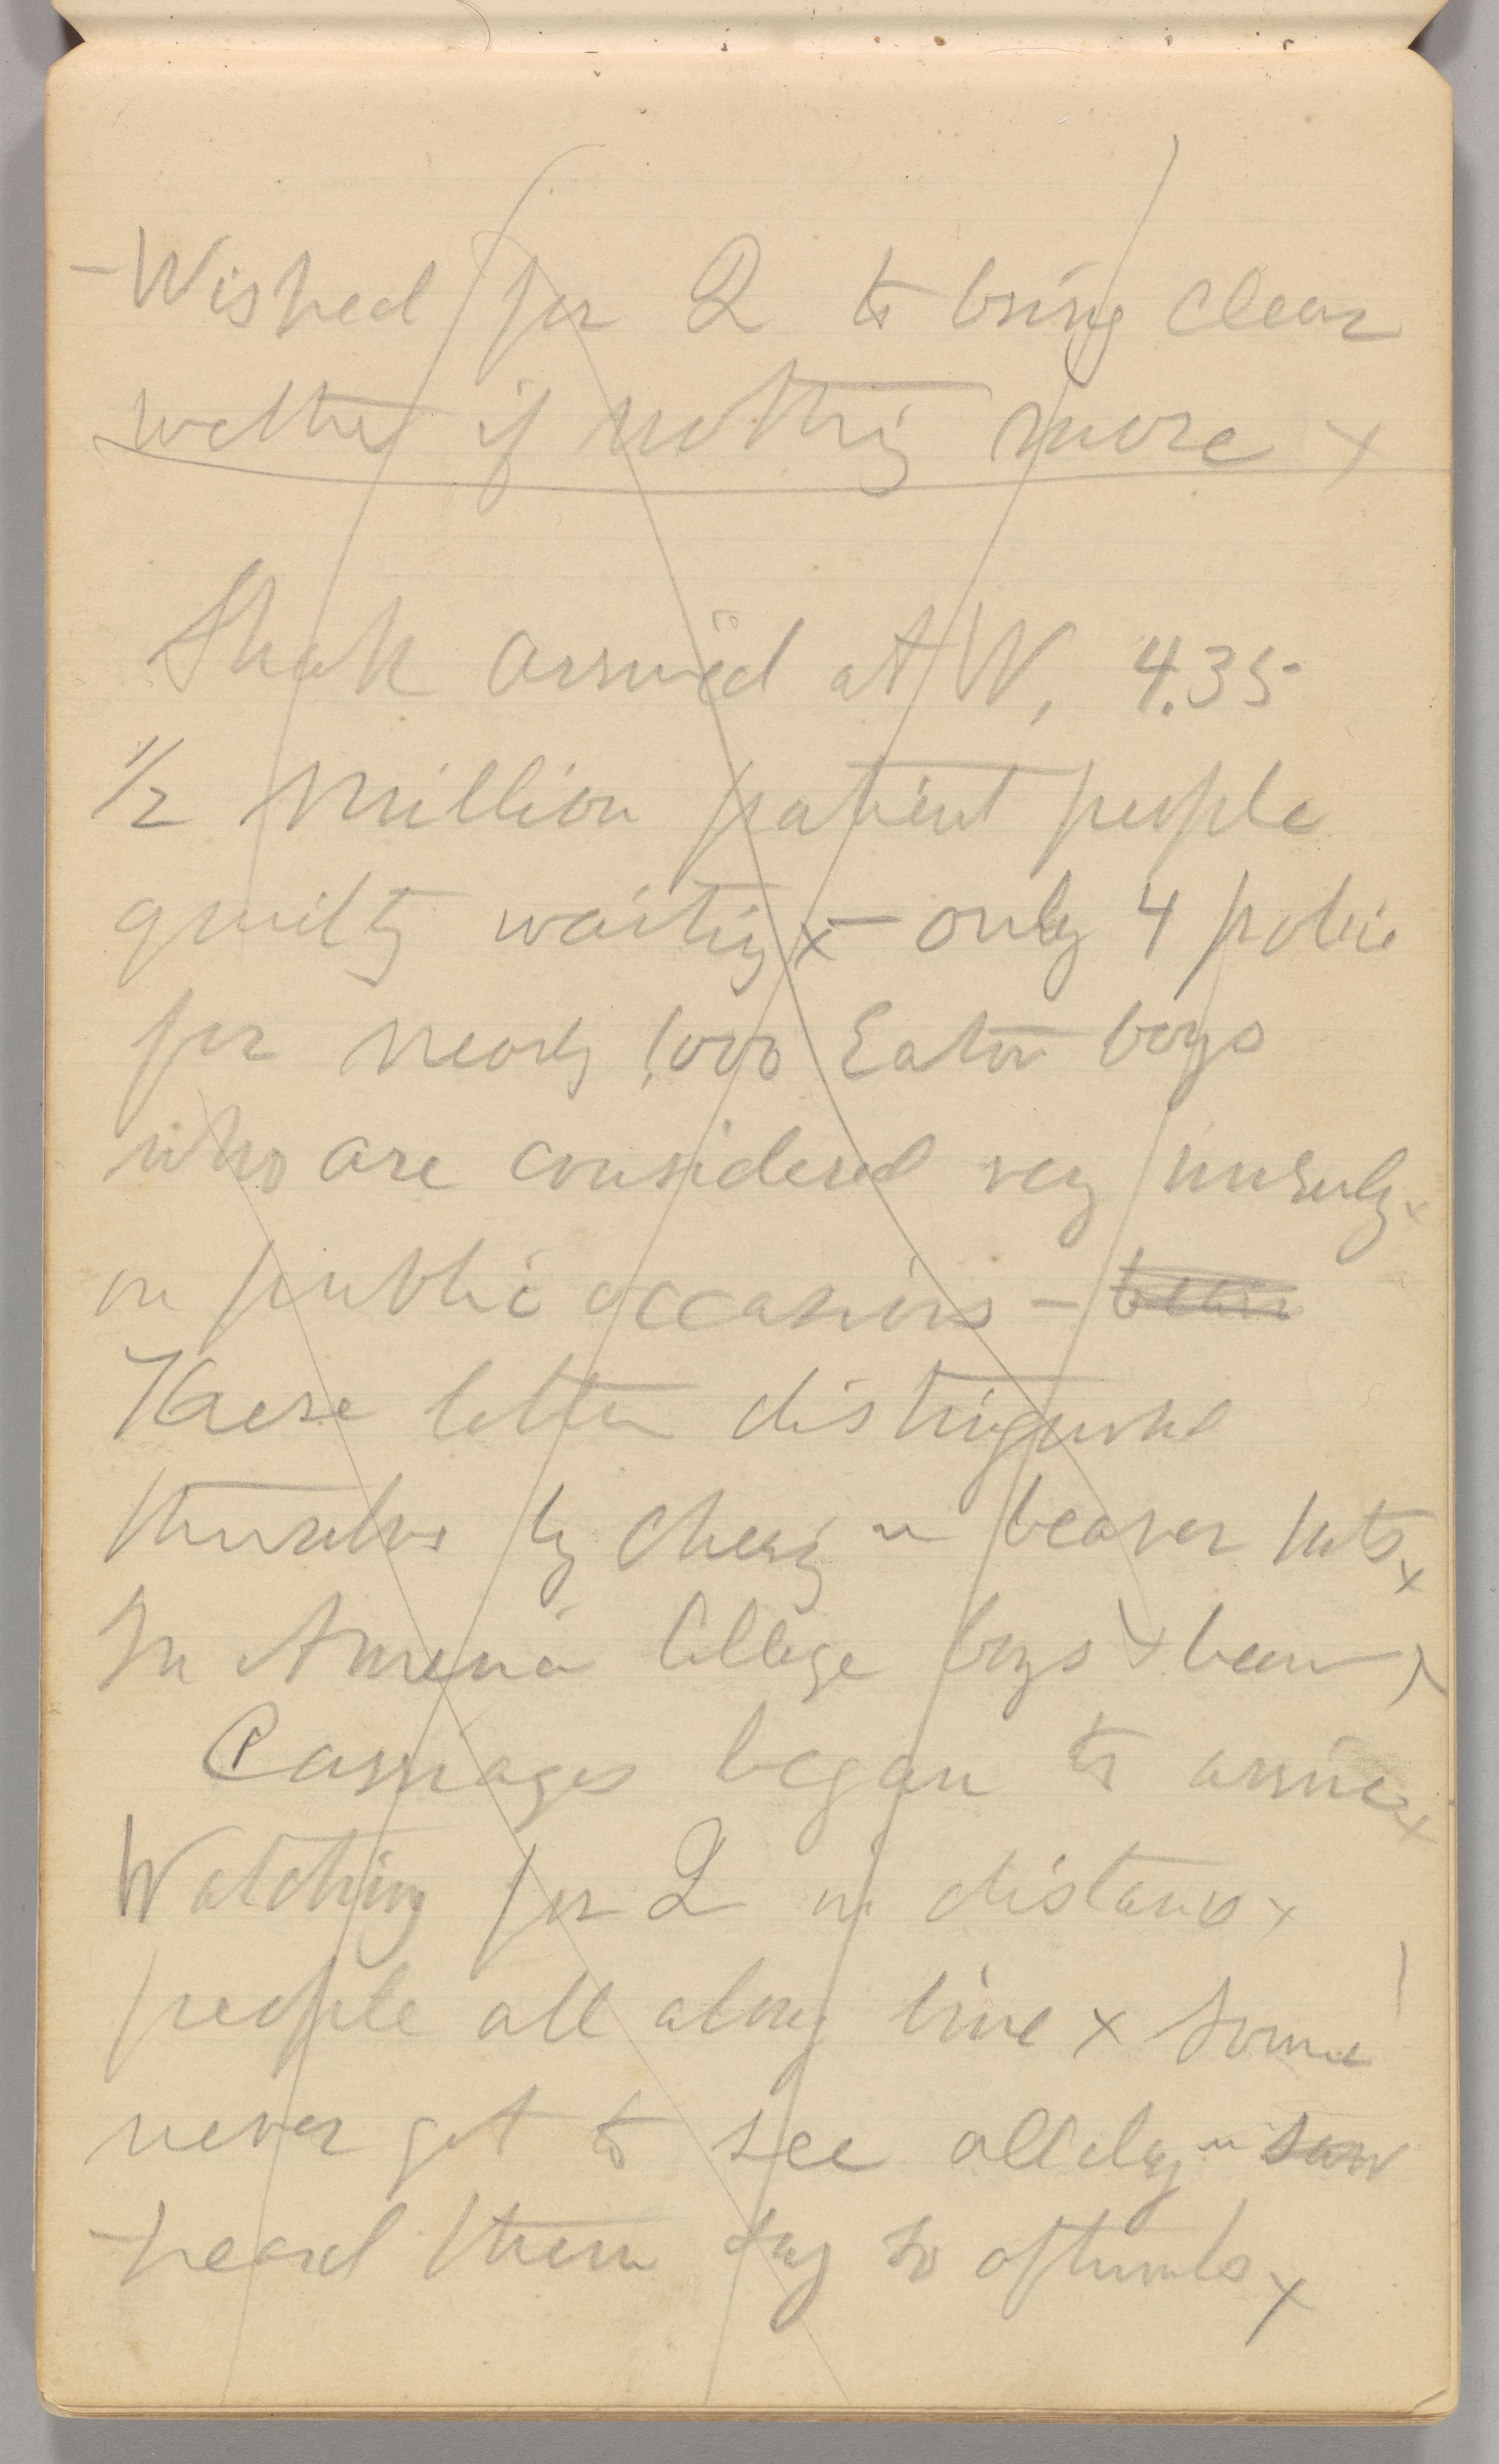 - Wished for Q to bring clear
wether if nothing more x
Shah arrived at W, 4.35
1/2 million patient people
quitly waiting x - only 4 police
for nearly 1,000 Eaton boys
who are considered very unruly x
on public occasions -
These latter distinguished
themselves by cheering in beaver hats x
In America College boys + beaver x
Carriages began to arrive x
Watching for Q in distance x
people all along line x Some
never got to see all day - saw
heard them say so afterwards x